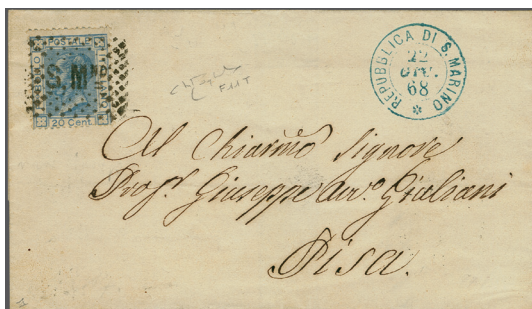 BOLLO POSTALE ITALIANO
S. Mno
20 Cent.
REPUBBLICA DI S. MARINO
22
GIU.
68
Al Chiarmo Signore
Profr Giuseppe avvo Giuliani
Pisa.